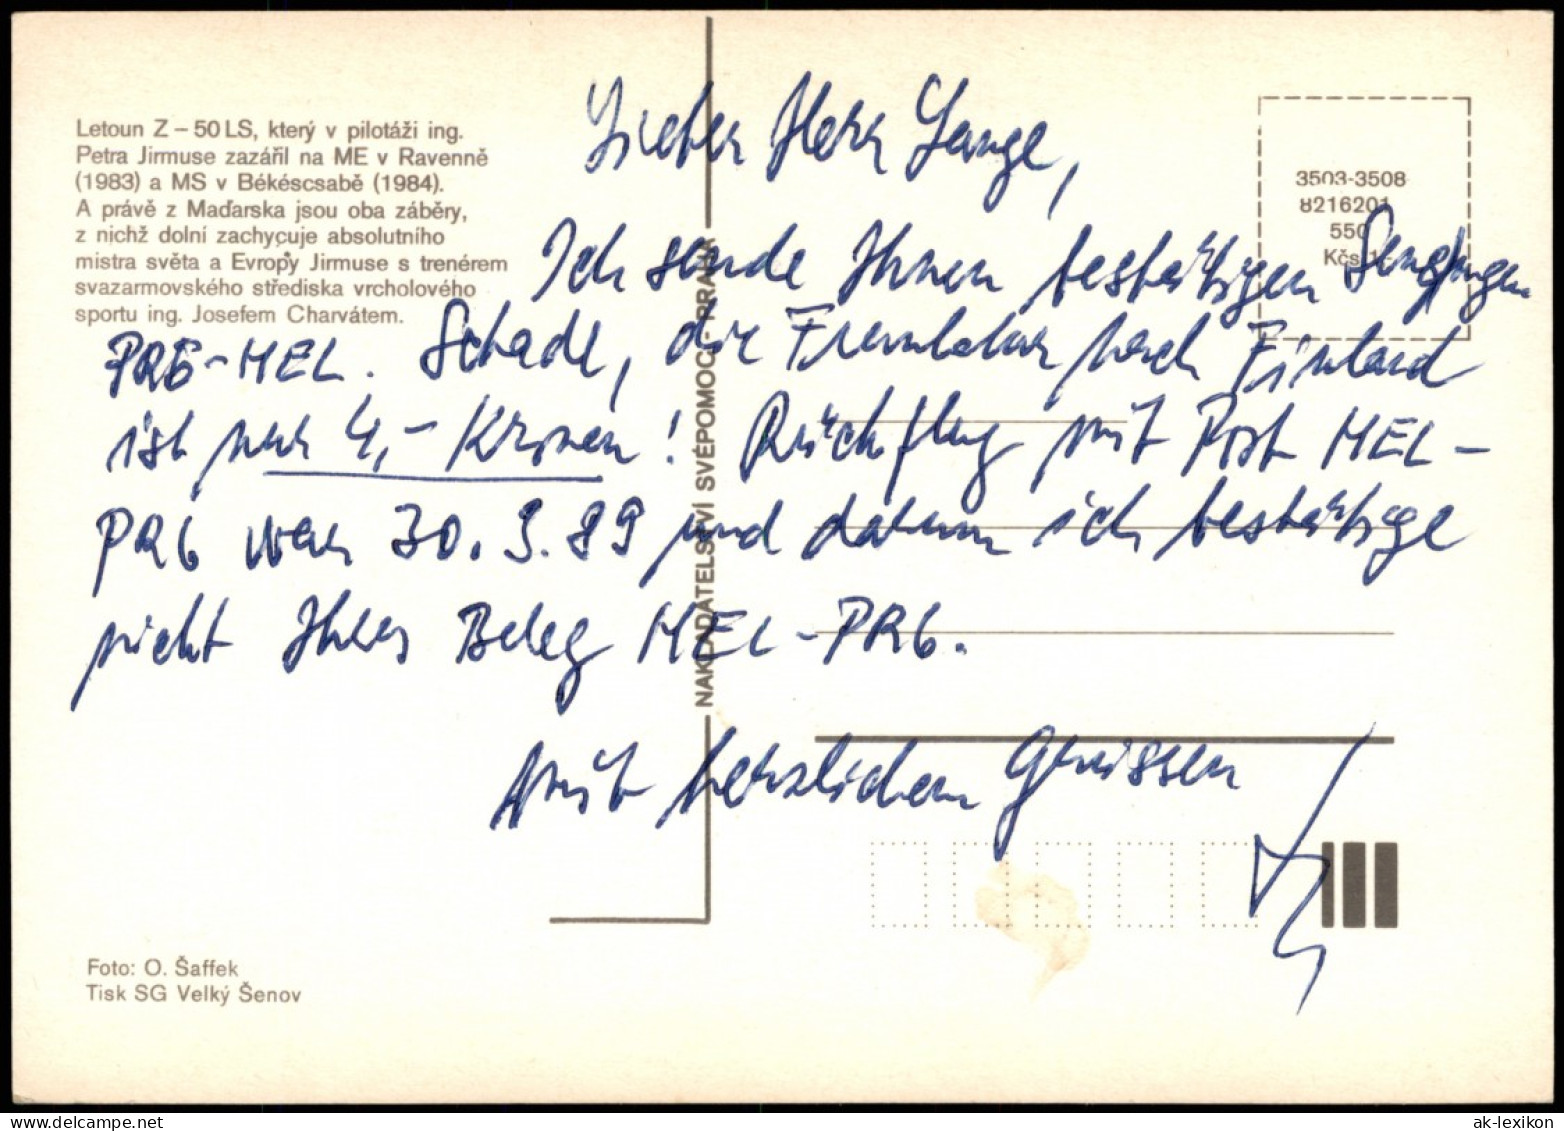 Letoun Z – 50 LS, který v pilotáži ing.
Petra Jirmuse zazářil na ME v Ravenně
(1983) a MS v Békéscsabě (1984).
A právě z Maďarska jsou oba záběry,
z nichž dolní zachycuje absolutního
mistra světa a Evropy Jirmuse s trenérem
svazarmovského střediska vrcholového
sportu ing. Josefem Charvátem.
3503-3508
8216201
550
Kčs
Lieber Herr Lange,
Ich sende Ihnen bestätigen Sendungen
PRG-HEL. Schade, die Frankatur nach Finland
ist nur 4,- Kronen! Rückflug mit Post HEL-
PRG war 30.9.89 und darum ich bestätige
nicht Ihres Beleg HEL-PRG.
Mit herzlichem Grüssen
NAKLADATELSTVÍ SVÉPOMOCI - PRAHA
Foto: O. Šaffek
Tisk SG Velký Šenov
ak-lexikon